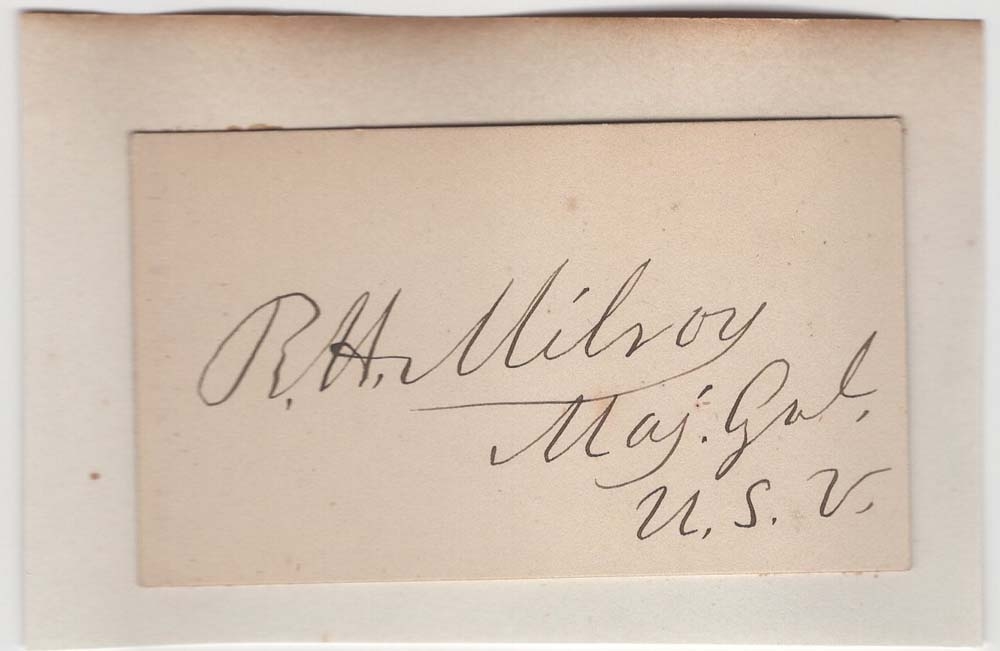 R. H. Milroy
Maj. Gnl.
U. S. V.